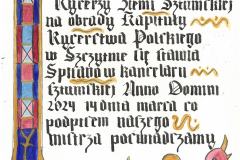 Rycerzy Ziemi Sztumskiej
na obrady Kapituły
Rycerstwa Polskiego
w Szczytnie się stawią
Sprawą w kancelarii
sztumskiej Anno Domini
2024 14 dnia marca co
podpisem naszego
mistrza poświadczamy